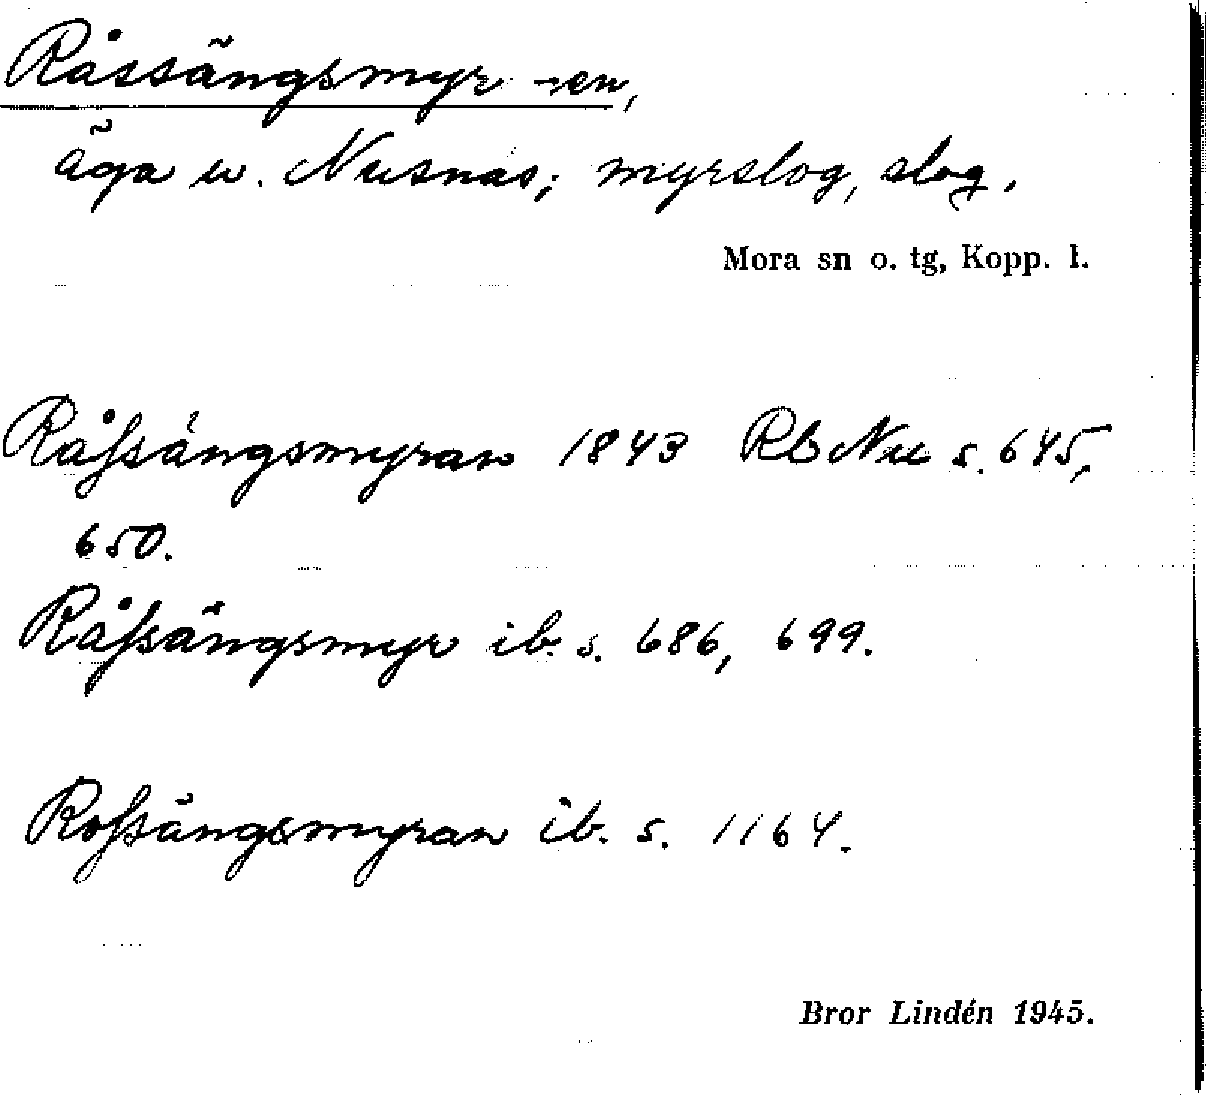 Råssängsmyr -en,
äga u. Nusnäs; myrslog, slog.
Mora sn o. tg, Kopp. l.
Råſsängsmyran 1843 Rb Nu s. 645,
650.
Råſsängsmyr ib. s. 686, 699.
Roſsängsmyran ib. s. 1164.
Bror Lindén 1945.